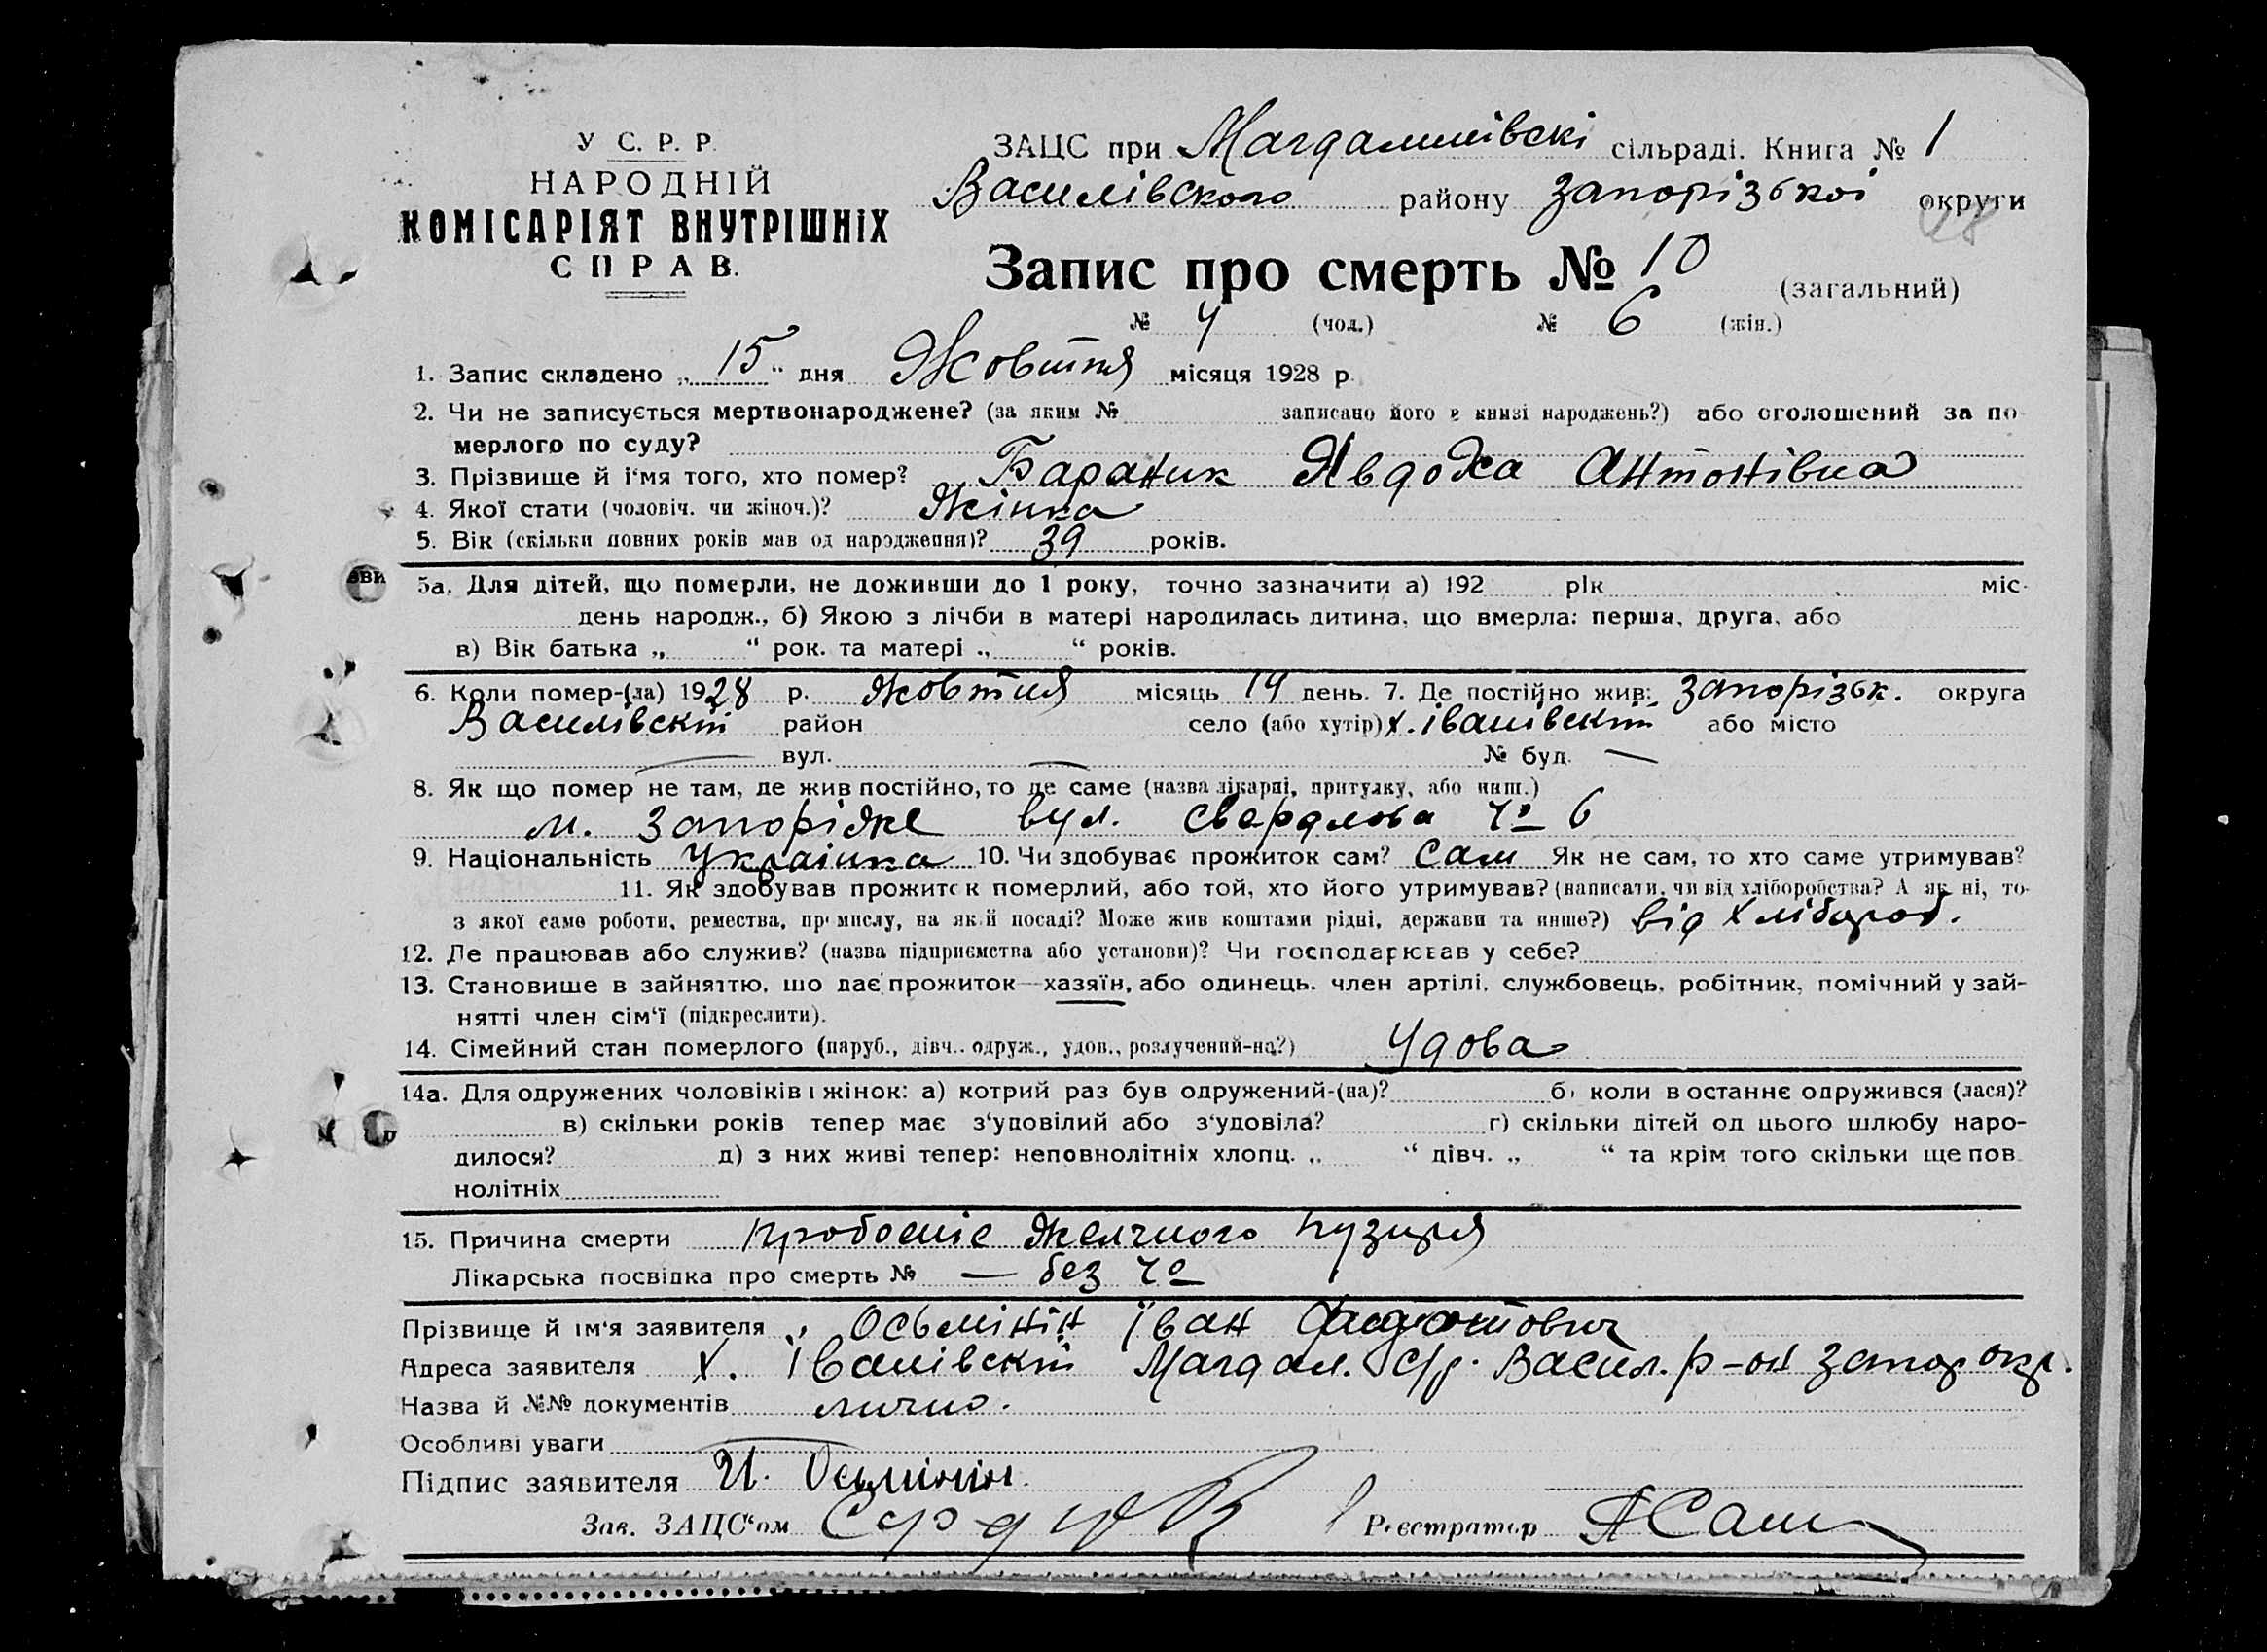 У С. Р. Р.
НАРОДНІЙ
КОМІСАРІЯТ ВНУТРІШНІХ
СПРАВ.
ЗАЦС при Магдалинівскі сільраді. Книга № 1
Василівского району Запорізької округи
Запис про смерть № 10 (загальний)
№ 4 (чол.) № 6 (жін.)
1. Запис складено „ 15 “ дня Жовтня місяця 1928 р.
2. Чи не записується мертвонароджене? (за яким № записано його в книзі народжень?) або оголошений за по-
мерлого по суду?
3. Прізвище й і‘мя того, хто помер? Бараник Явдоха Антонівна
4. Якої стати (чоловіч. чи жіноч.)? Жінка
5. Вік (скільки повних років мав од народження)? 39 років.
5а. Для дітей, що померли, не доживши до 1 року, точно зазначити а) 192 рік міс.
день народж., б) Якою з лічби в матері народилась дитина, що вмерла: перша, друга, або
в) Вік батька „ “ рок. та матері „ “ років.
6. Коли помер-(ла) 1928 р. жовтня місяць 14 день. 7. Де постійно жив: Запорізьк. округа
Василівскій район село (або хутір) х. Іванівскій або місто
вул. № буд. —
8. Як що помер не там, де жив постійно, то де саме (назва лікарні, притулку, або инш.)
м. Запоріжже вул. Свердлова № 6
9. Національність Українка 10. Чи здобуває прожиток сам? Сам Як не сам, то хто саме утримував?
11. Як здобував прожиток померлий, або той, хто його утримував? (написати, чи від хліборобства? А як ні, то-
з якої саме роботи, ремества, промислу, на якій посаді? Може жив коштами рідні, держави та инше?) від хлібороб.
12. Де працював або служив? (назва підприємства або установи)? Чи господарював у себе?
13. Становище в зайняттю, що дає прожиток—хазяїн, або одинець, член артілі, службовець, робітник, помічний у зай-
нятті член сім‘ї (підкреслити).
14. Сімейний стан померлого (паруб., дівч., одруж., удов., розлучений-на?) Удова
14а. Для одружених чоловіків і жінок: а) котрий раз був одружений-(на)? б) коли в останнє одружився (лася)?
в) скільки років тепер має з‘удовілий або з‘удовіла? г) скільки дітей од цього шлюбу наро-
дилося? д) з них живі тепер: неповнолітніх хлопц. „ “ дівч. „ “ та крім того скільки ще пов-
нолітніх
15. Причина смерти прободеніє желчного пузиря
Лікарська посвідка про смерть № — без №
Прізвище й ім‘я заявителя Осьмінін Іван
Адреса заявителя х. Іванівскій Магдал. с/р. Васил. р-он Запор окр.
Назва й №№ документів лично.
Особливі уваги
Підпис заявителя И. Осьмінін
Зав. ЗАЦС“ом
Реєстратор